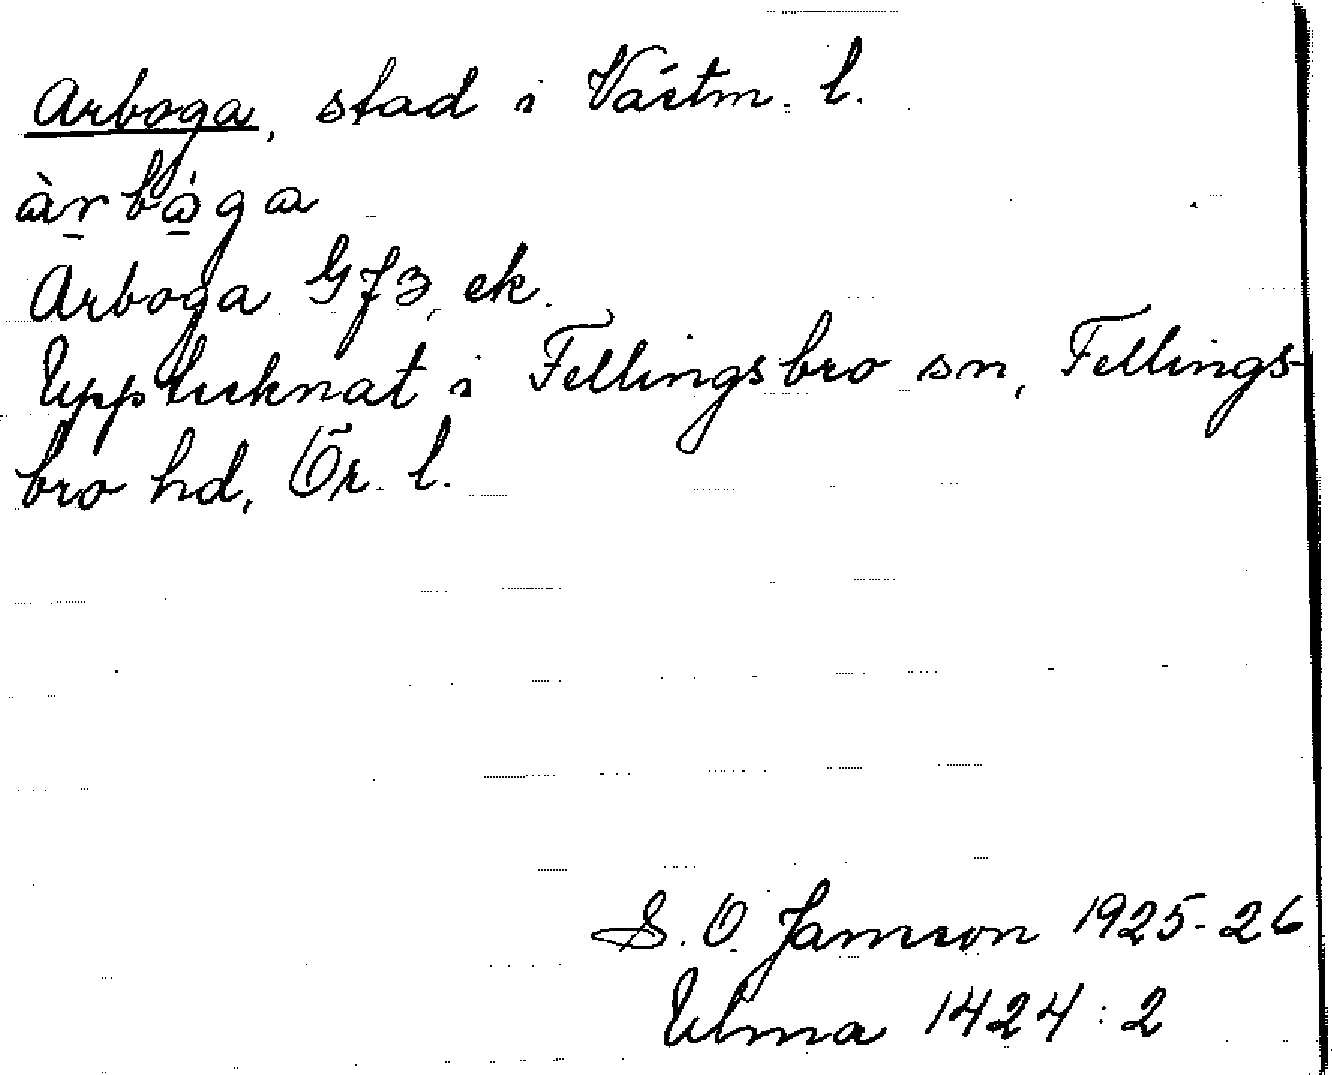 Arboga, stad i Västm. l.
àrbåga
Arboga GJ3, ek.
Upptecknat i Fellingsbro sn, Fellings-
bro hd, Ör. l.
S. O. Jamson 1925-26
Ulma 1424:2